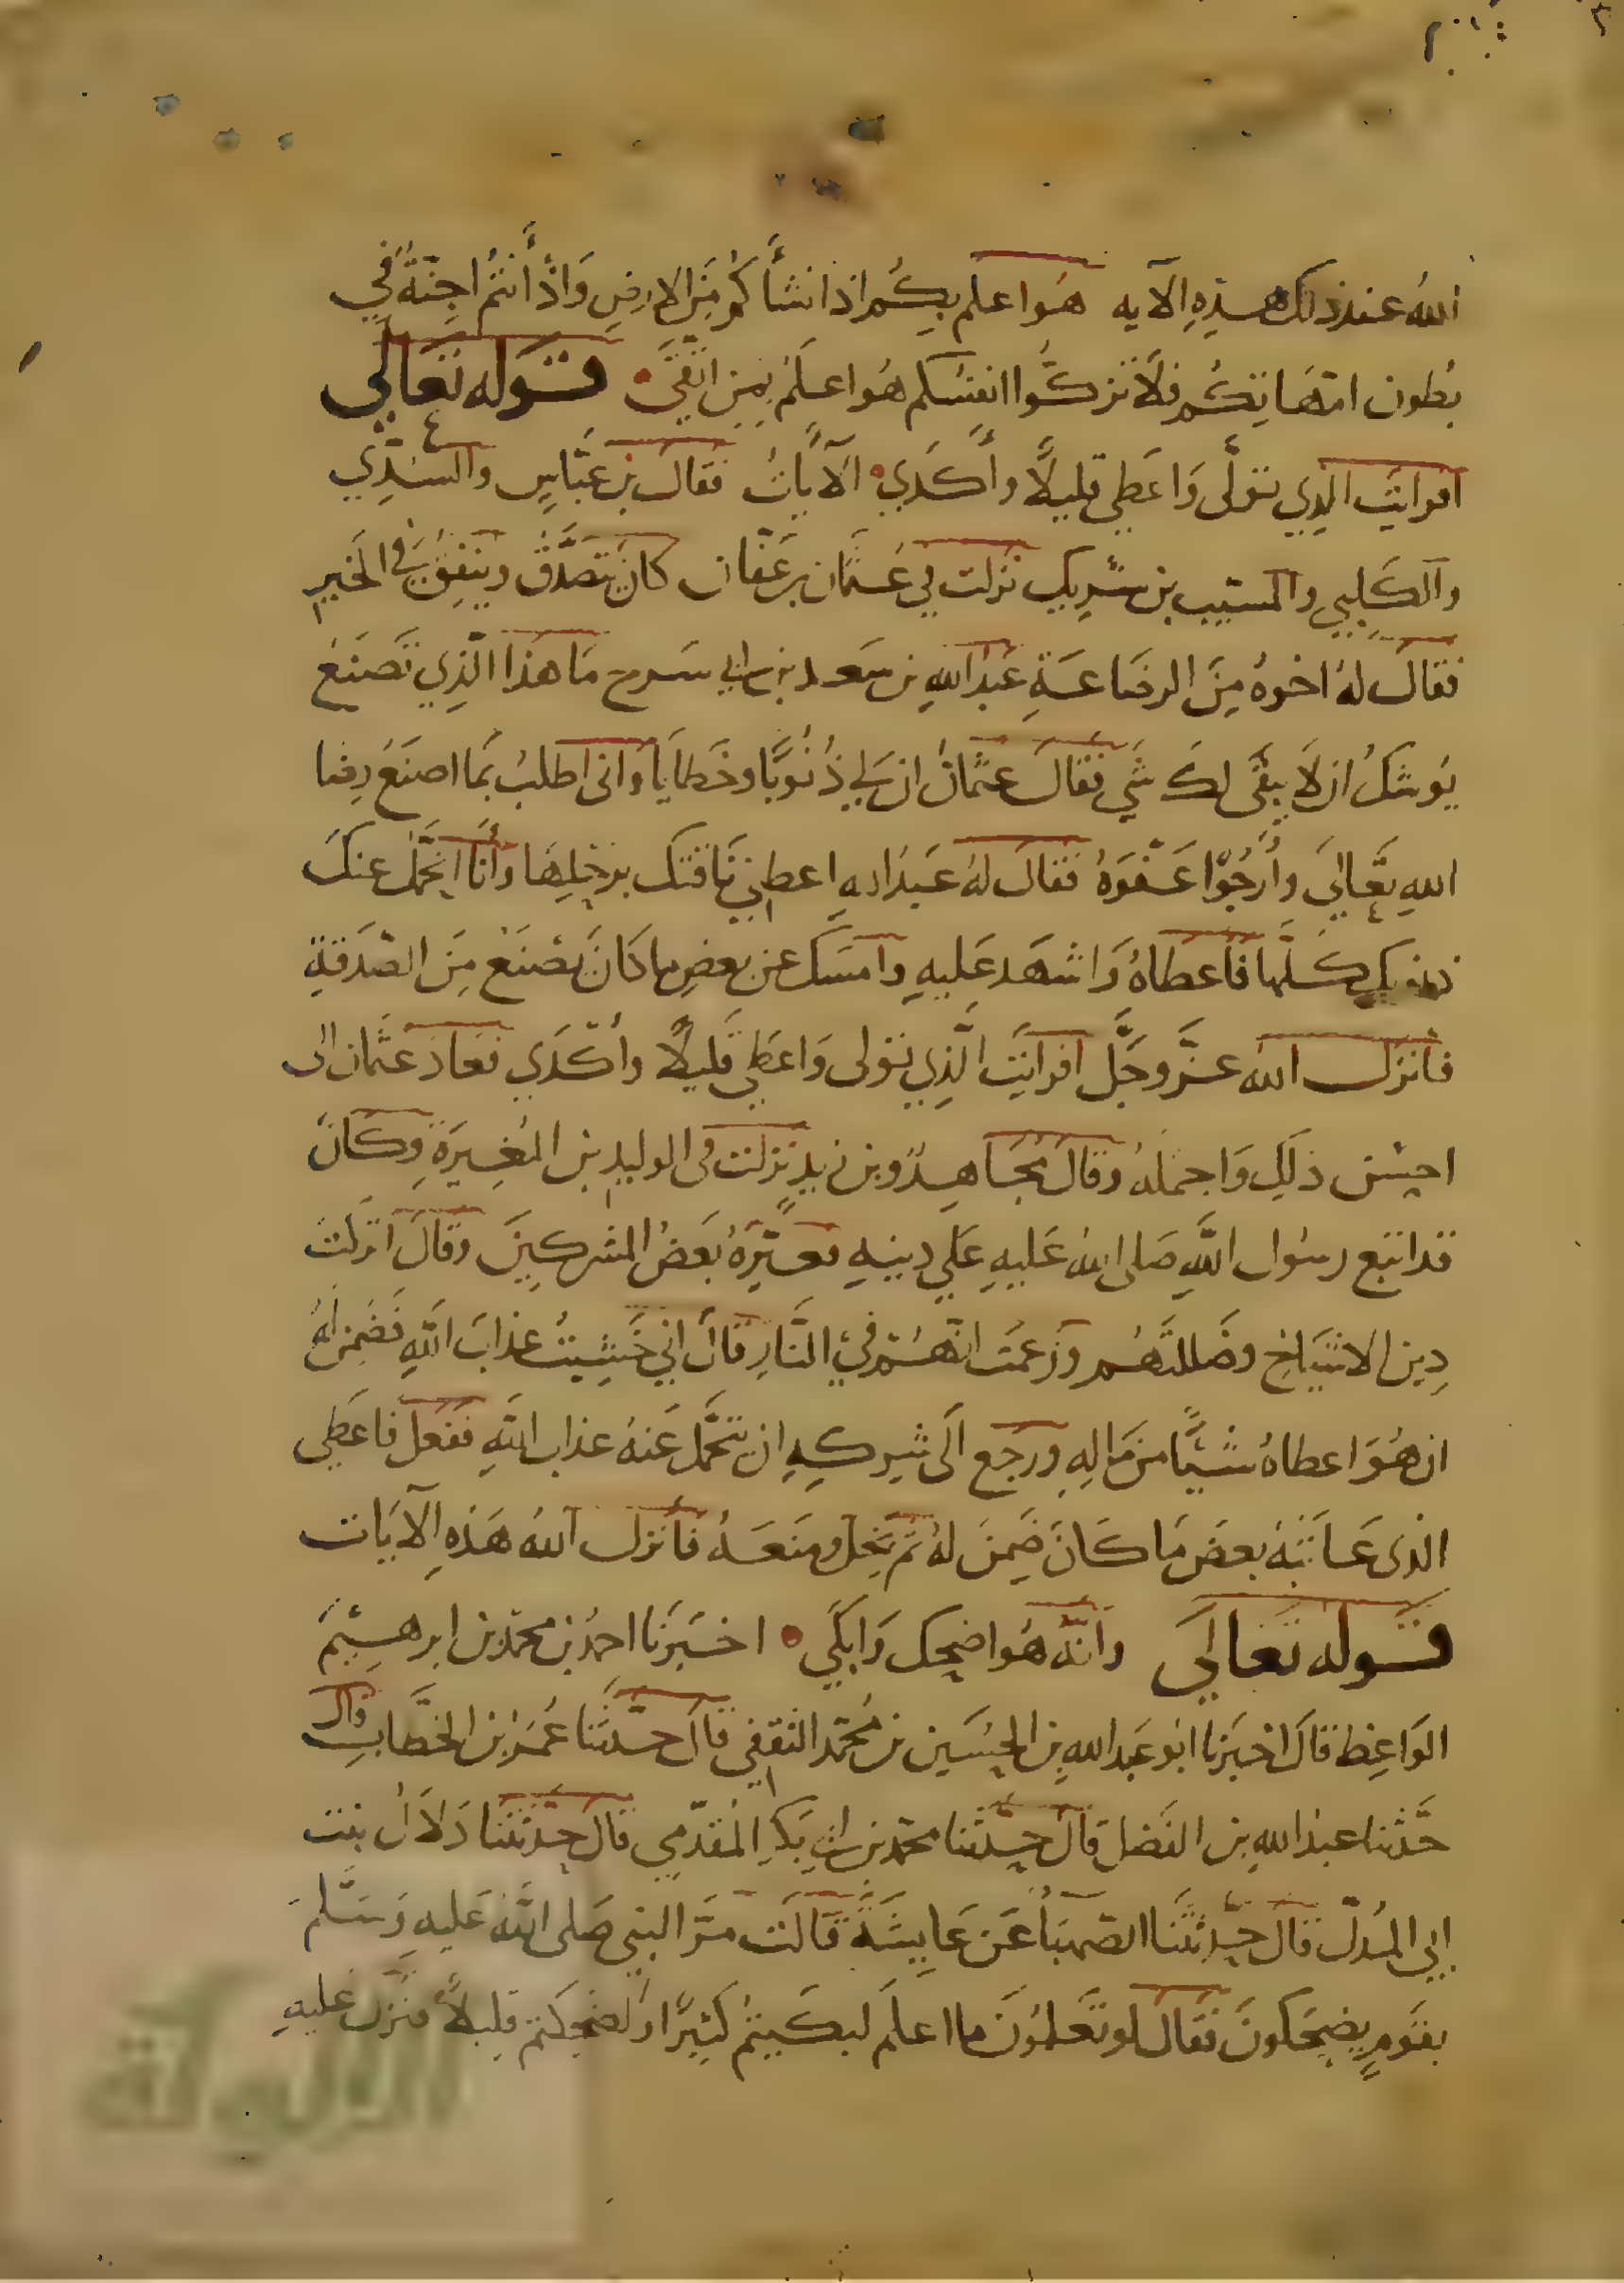 الله عند ذلك هذه الآيه هُوا علم بكُم اذ انشأكم مِنَ الارضِ وَاذْ أنتمُ اجِنّةٌ في
بُطون امّهَاتِكُم فلاَ تزكُّوا انفسَكم هُوا علَمُ بِمَن اتَّقَى قوله تعَالي
افرايَتَ الذِي تولّى وَاعَطي قليلًا وأكدَي الآيَاتُ فقال بن عبَّاسٍ والسُدّيِ
والكَلبي والمسَيّب بن شَرِيكٍ نزلت في عُثمَان بن عَفّان كان يَتصَدَّقُ وينفِقُ في الخيرِ
فقال لهُ اخوهُ مِنَ الرضَاعَةِ عَبد اللهِ بن سَعد بن ابي سَرح مَا هذا الّذِي تَصنَعُ
يُوشكُ ان لاَ يبقَى لك شي فقال عثمَانُ ان لي ذُنُوبًا وخَطَايَا وانى اطلبُ بمَا اصنَعُ رِضا
اللهِ تعَاليَ وأرجُوا عَفوَهُ فقال لهُ عَبدُ اللهِ اعطِني نَاقتك برحلِهَا وأنَا اتحَمّل عنكَ
ذنوبك كلّها فأعطاهُ وَاشهَد عَليهِ وامسَك عن بعضِ ما كَانَ يَصنَعُ مِنَ الصّدَقةِ
فأنزل الله عزَّ وجَلَّ افرايَتَ الَّذِي تولى وَاعطَي قَليلًا وأكدَي فعَادَ عثمَان الى
احسَن ذلِكَ وَاجملهُ وقال مُجَاهِدٌ وبن زيدٍ نزلت في الوليدِ بن المُغِيرَةِ وكانَ
قد اتبع رسُول اللهِ صَلى اللهُ عَليهِ عَلي دِينهِ فعَيّرَهُ بَعضُ المشركِينَ وقالَ اتركت
دِين الاشيَاخِ وضَللتَهُم وزَعمَت انّهُم في النَّارِ قال اني خَشِيتُ عذابَ اللهِ فضَمِنَ لهُ
ان هُوَ اعطاهُ شيئًا من مَالِهِ ورجع الَى شِركهِ ان يتحمَّل عَنهُ عذاب اللهِ ففعل فاعَطي
الذى عَاتَبَهُ بعضَ مَا كانَ ضَمِنَ لهُ ثم بَخِل ومنعَهُ فأنزل اللهُ هَذهِ الآيَات
قوله تعَاليَ وَانّهُ هُوا ضحك وَابكَي اخبَرنَا احمدُ بن محمّد بن ابرهيمَ
الوَاعِظ قالَ اخبَرنا ابُو عَبد اللهِ بن الحُسَين بن مُحَمّد الثقفي قال حدّثنَا عُمَرُ بن الخطَّابِ قال
حَدَّثنا عبدُ اللهِ بن الفَضل قال حدّثنا محمّد بن ابي بَكرِ المُقدّمي قال حدّثتنا دَلاَلُ بنت
ابي المُدلّ قال حدّثتنَا الصّهبَا عَن عَايشَةَ قالَت مرَّ النبي صَلى اللهُ عَليهِ وَسَلّمَ
بقَومٍ يضحَكونَ فقال لو تَعلمُونَ ما اعلَم لبكَيتمُ كَثيرًا ولضَحِكتم قليلاً فنَزل عَليهِ